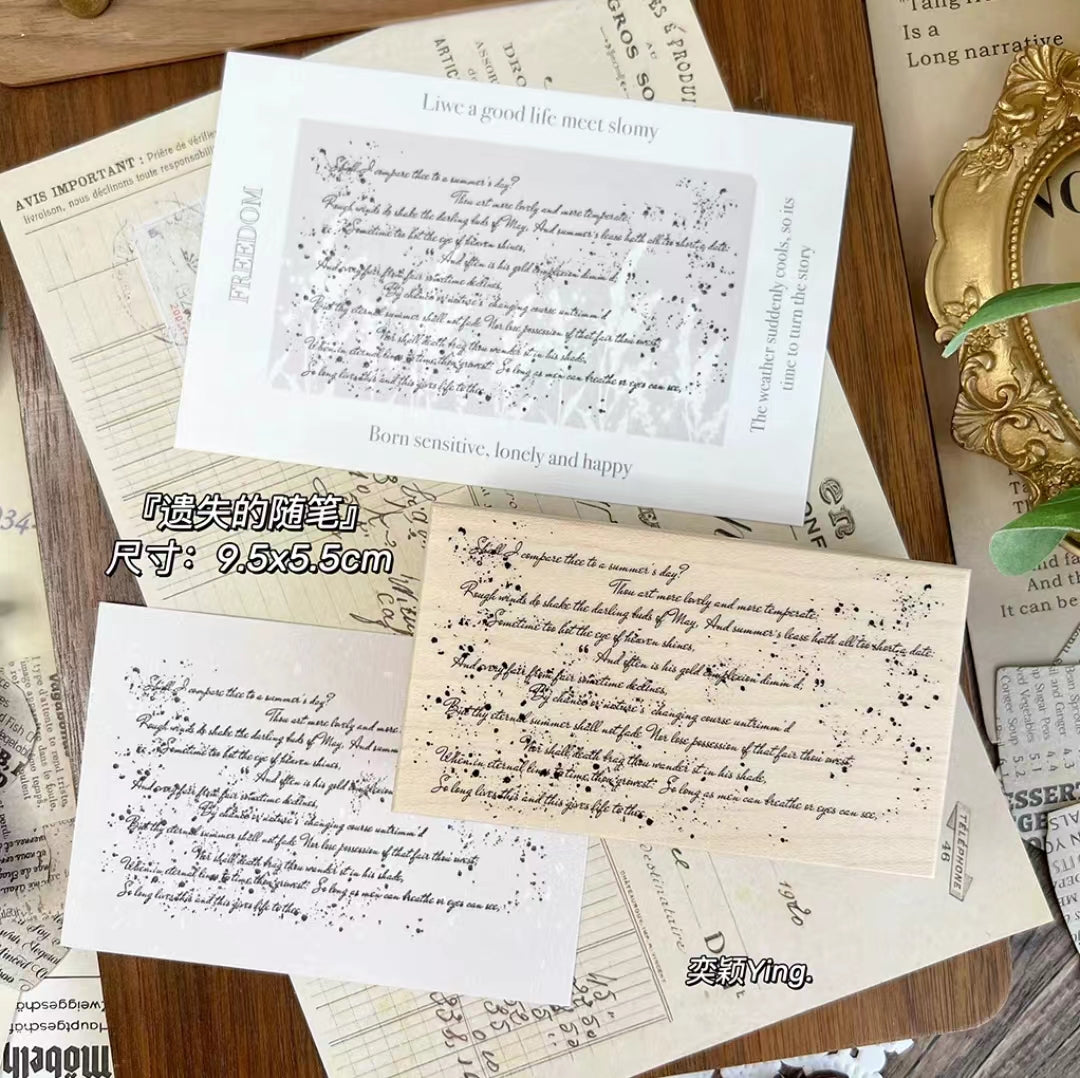 "Tang
Is a
Long narrative
ÉS
É.PRODUI
AU
GROS SO
DRO
ASSOR
ARTIC
AVIS IMPORTANT : Prière de vérifie
livraison, nous déclinons toute responsabili
Liwe a good life meet slomy
FREEDOM
Shall I compare thee to a summer's day?
Thou art more lovely and more temperate:
Rough winds do shake the darling buds of May, And summer's lease hath all too short a date:
Sometime too hot the eye of heaven shines,
“ And often is his gold complexion dimm'd; ”
And every fair from fair sometime declines,
By chance or nature's changing course untrimm'd
But thy eternal summer shall not fade Nor lose possession of that fair thou owest;
Nor shall death brag thou wander'st in his shade,
When in eternal lines to time thou growest: So long as men can breathe or eyes can see,
So long lives this and this gives life to thee.
The weather suddenly cools, so its
time to turn the story
Born sensitive, lonely and happy
『遗失的随笔』
尺寸：9.5x5.5cm
Shall I compare thee to a summer's day?
Thou art more lovely and more temperate:
Rough winds do shake the darling buds of May, And summer's lease hath all too short a date:
Sometime too hot the eye of heaven shines,
“ And often is his gold complexion dimm'd; ”
And every fair from fair sometime declines,
By chance or nature's changing course untrimm'd
But thy eternal summer shall not fade Nor lose possession of that fair thou owest;
Nor shall death brag thou wander'st in his shade,
When in eternal lines to time thou growest: So long as men can breathe or eyes can see,
So long lives this and this gives life to thee.
Shall I compare thee to a summer's day?
Thou art more lovely and more
Rough winds do shake the darling buds of May, And summ
Sometime too hot the eye of heaven shines,
“ And often is his gold complexion
And every fair from fair sometime declines,
By chance or nature's changing course untrimm'd
But thy eternal summer shall not fade Nor lose possession of that fair thou owest;
Nor shall death brag thou wander'st in his shade,
When in eternal lines to time thou growest: So long as men can breathe or eyes can see,
So long lives this and this gives life to thee.
And th
It can be
TÉLÉPHONE
46
1920
奕颖Ying.
zweiggeschä
Hauptgeschä
möbelh